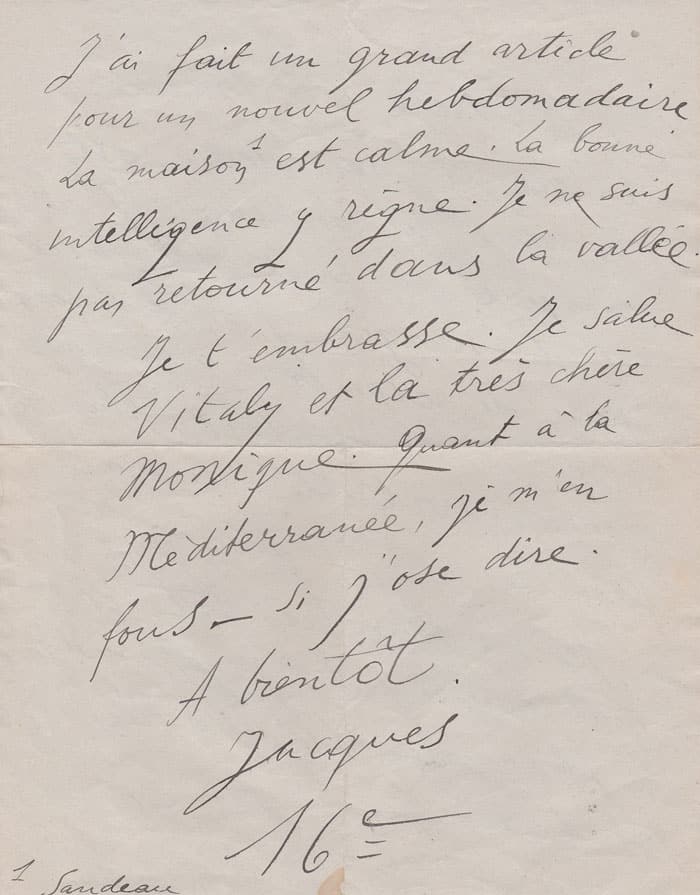 J'ai fait un grand article
pour un nouvel hebdomadaire
La maison¹ est calme. La bonne
intelligence y règne. Je ne suis
pas retourné dans la vallée.
Je t'embrasse. Je salue
Vitaly et la très chère
Monique. Quant à la
Méditerranée, je m'en
fous – si j'ose dire.
A bientôt.
Jacques
16e
1 Sandeau